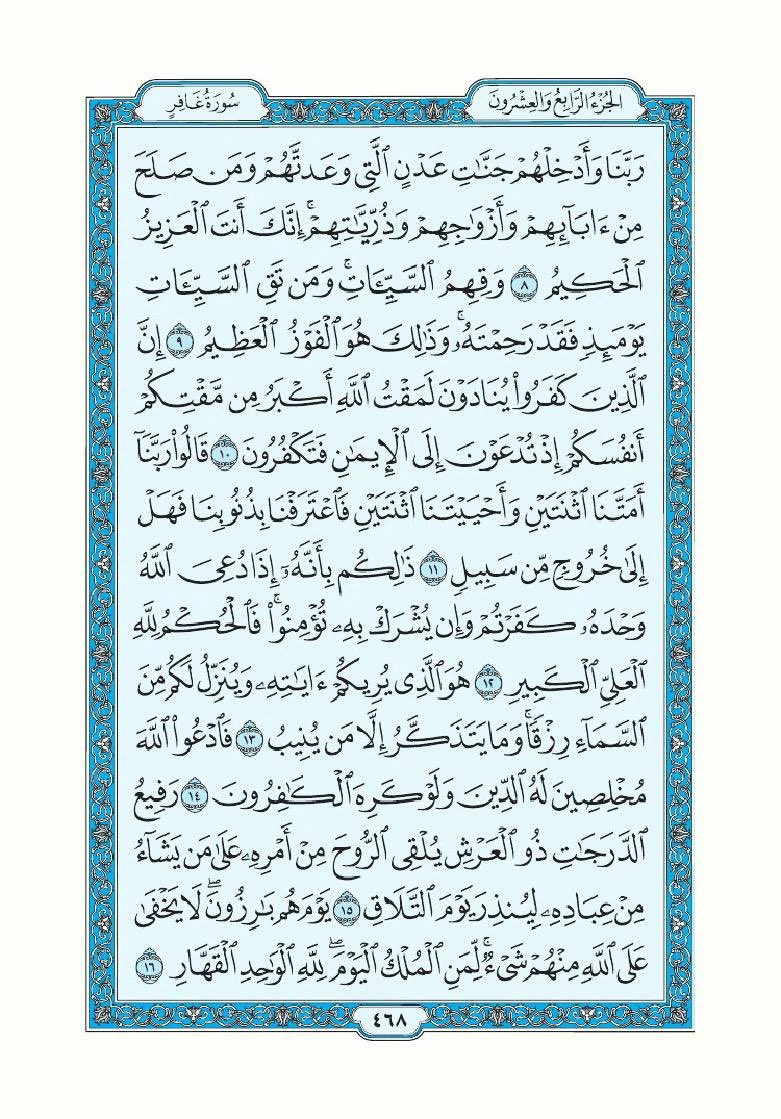 الجُزْءُ الرَّابِعُ وَالعِشْرُونَ
سُورَةُ غَافِرٍ
رَبَّنَا وَأَدْخِلْهُمْ جَنَّٰتِ عَدْنٍ ٱلَّتِي وَعَدتَّهُمْ وَمَن صَلَحَ
مِنْ ءَابَآئِهِمْ وَأَزْوَٰجِهِمْ وَذُرِّيَّٰتِهِمْۚ إِنَّكَ أَنتَ ٱلْعَزِيزُ
ٱلْحَكِيمُ ٨ وَقِهِمُ ٱلسَّيِّـَٔاتِۚ وَمَن تَقِ ٱلسَّيِّـَٔاتِ
يَوْمَئِذٍ فَقَدْ رَحِمْتَهُۥۚ وَذَٰلِكَ هُوَ ٱلْفَوْزُ ٱلْعَظِيمُ ٩ إِنَّ
ٱلَّذِينَ كَفَرُوا۟ يُنَادَوْنَ لَمَقْتُ ٱللَّهِ أَكْبَرُ مِن مَّقْتِكُمْ
أَنفُسَكُمْ إِذْ تُدْعَوْنَ إِلَى ٱلْإِيمَٰنِ فَتَكْفُرُونَ ١٠ قَالُوا۟ رَبَّنَآ
أَمَتَّنَا ٱثْنَتَيْنِ وَأَحْيَيْتَنَا ٱثْنَتَيْنِ فَٱعْتَرَفْنَا بِذُنُوبِنَا فَهَلْ
إِلَىٰ خُرُوجٍ مِّن سَبِيلٍ ١١ ذَٰلِكُم بِأَنَّهُۥٓ إِذَا دُعِيَ ٱللَّهُ
وَحْدَهُۥ كَفَرْتُمْ وَإِن يُشْرَكْ بِهِۦ تُؤْمِنُوا۟ۚ فَٱلْحُكْمُ لِلَّهِ
ٱلْعَلِيِّ ٱلْكَبِيرِ ١٢ هُوَ ٱلَّذِي يُرِيكُمْ ءَايَٰتِهِۦ وَيُنَزِّلُ لَكُم مِّنَ
ٱلسَّمَآءِ رِزْقًاۚ وَمَا يَتَذَكَّرُ إِلَّا مَن يُنِيبُ ١٣ فَٱدْعُوا۟ ٱللَّهَ
مُخْلِصِينَ لَهُ ٱلدِّينَ وَلَوْ كَرِهَ ٱلْكَٰفِرُونَ ١٤ رَفِيعُ
ٱلدَّرَجَٰتِ ذُو ٱلْعَرْشِ يُلْقِي ٱلرُّوحَ مِنْ أَمْرِهِۦ عَلَىٰ مَن يَشَآءُ
مِنْ عِبَادِهِۦ لِيُنذِرَ يَوْمَ ٱلتَّلَاقِ ١٥ يَوْمَ هُم بَٰرِزُونَۖ لَا يَخْفَىٰ
عَلَى ٱللَّهِ مِنْهُمْ شَيْءٌۚ لِّمَنِ ٱلْمُلْكُ ٱلْيَوْمَۖ لِلَّهِ ٱلْوَٰحِدِ ٱلْقَهَّارِ ١٦
٤٦٨